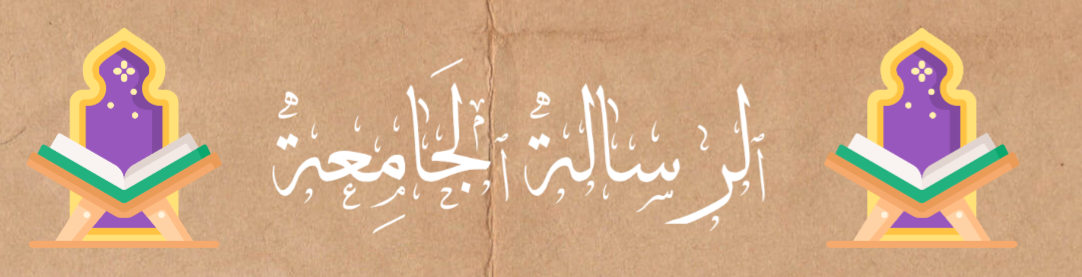 الرسالة الجامعة